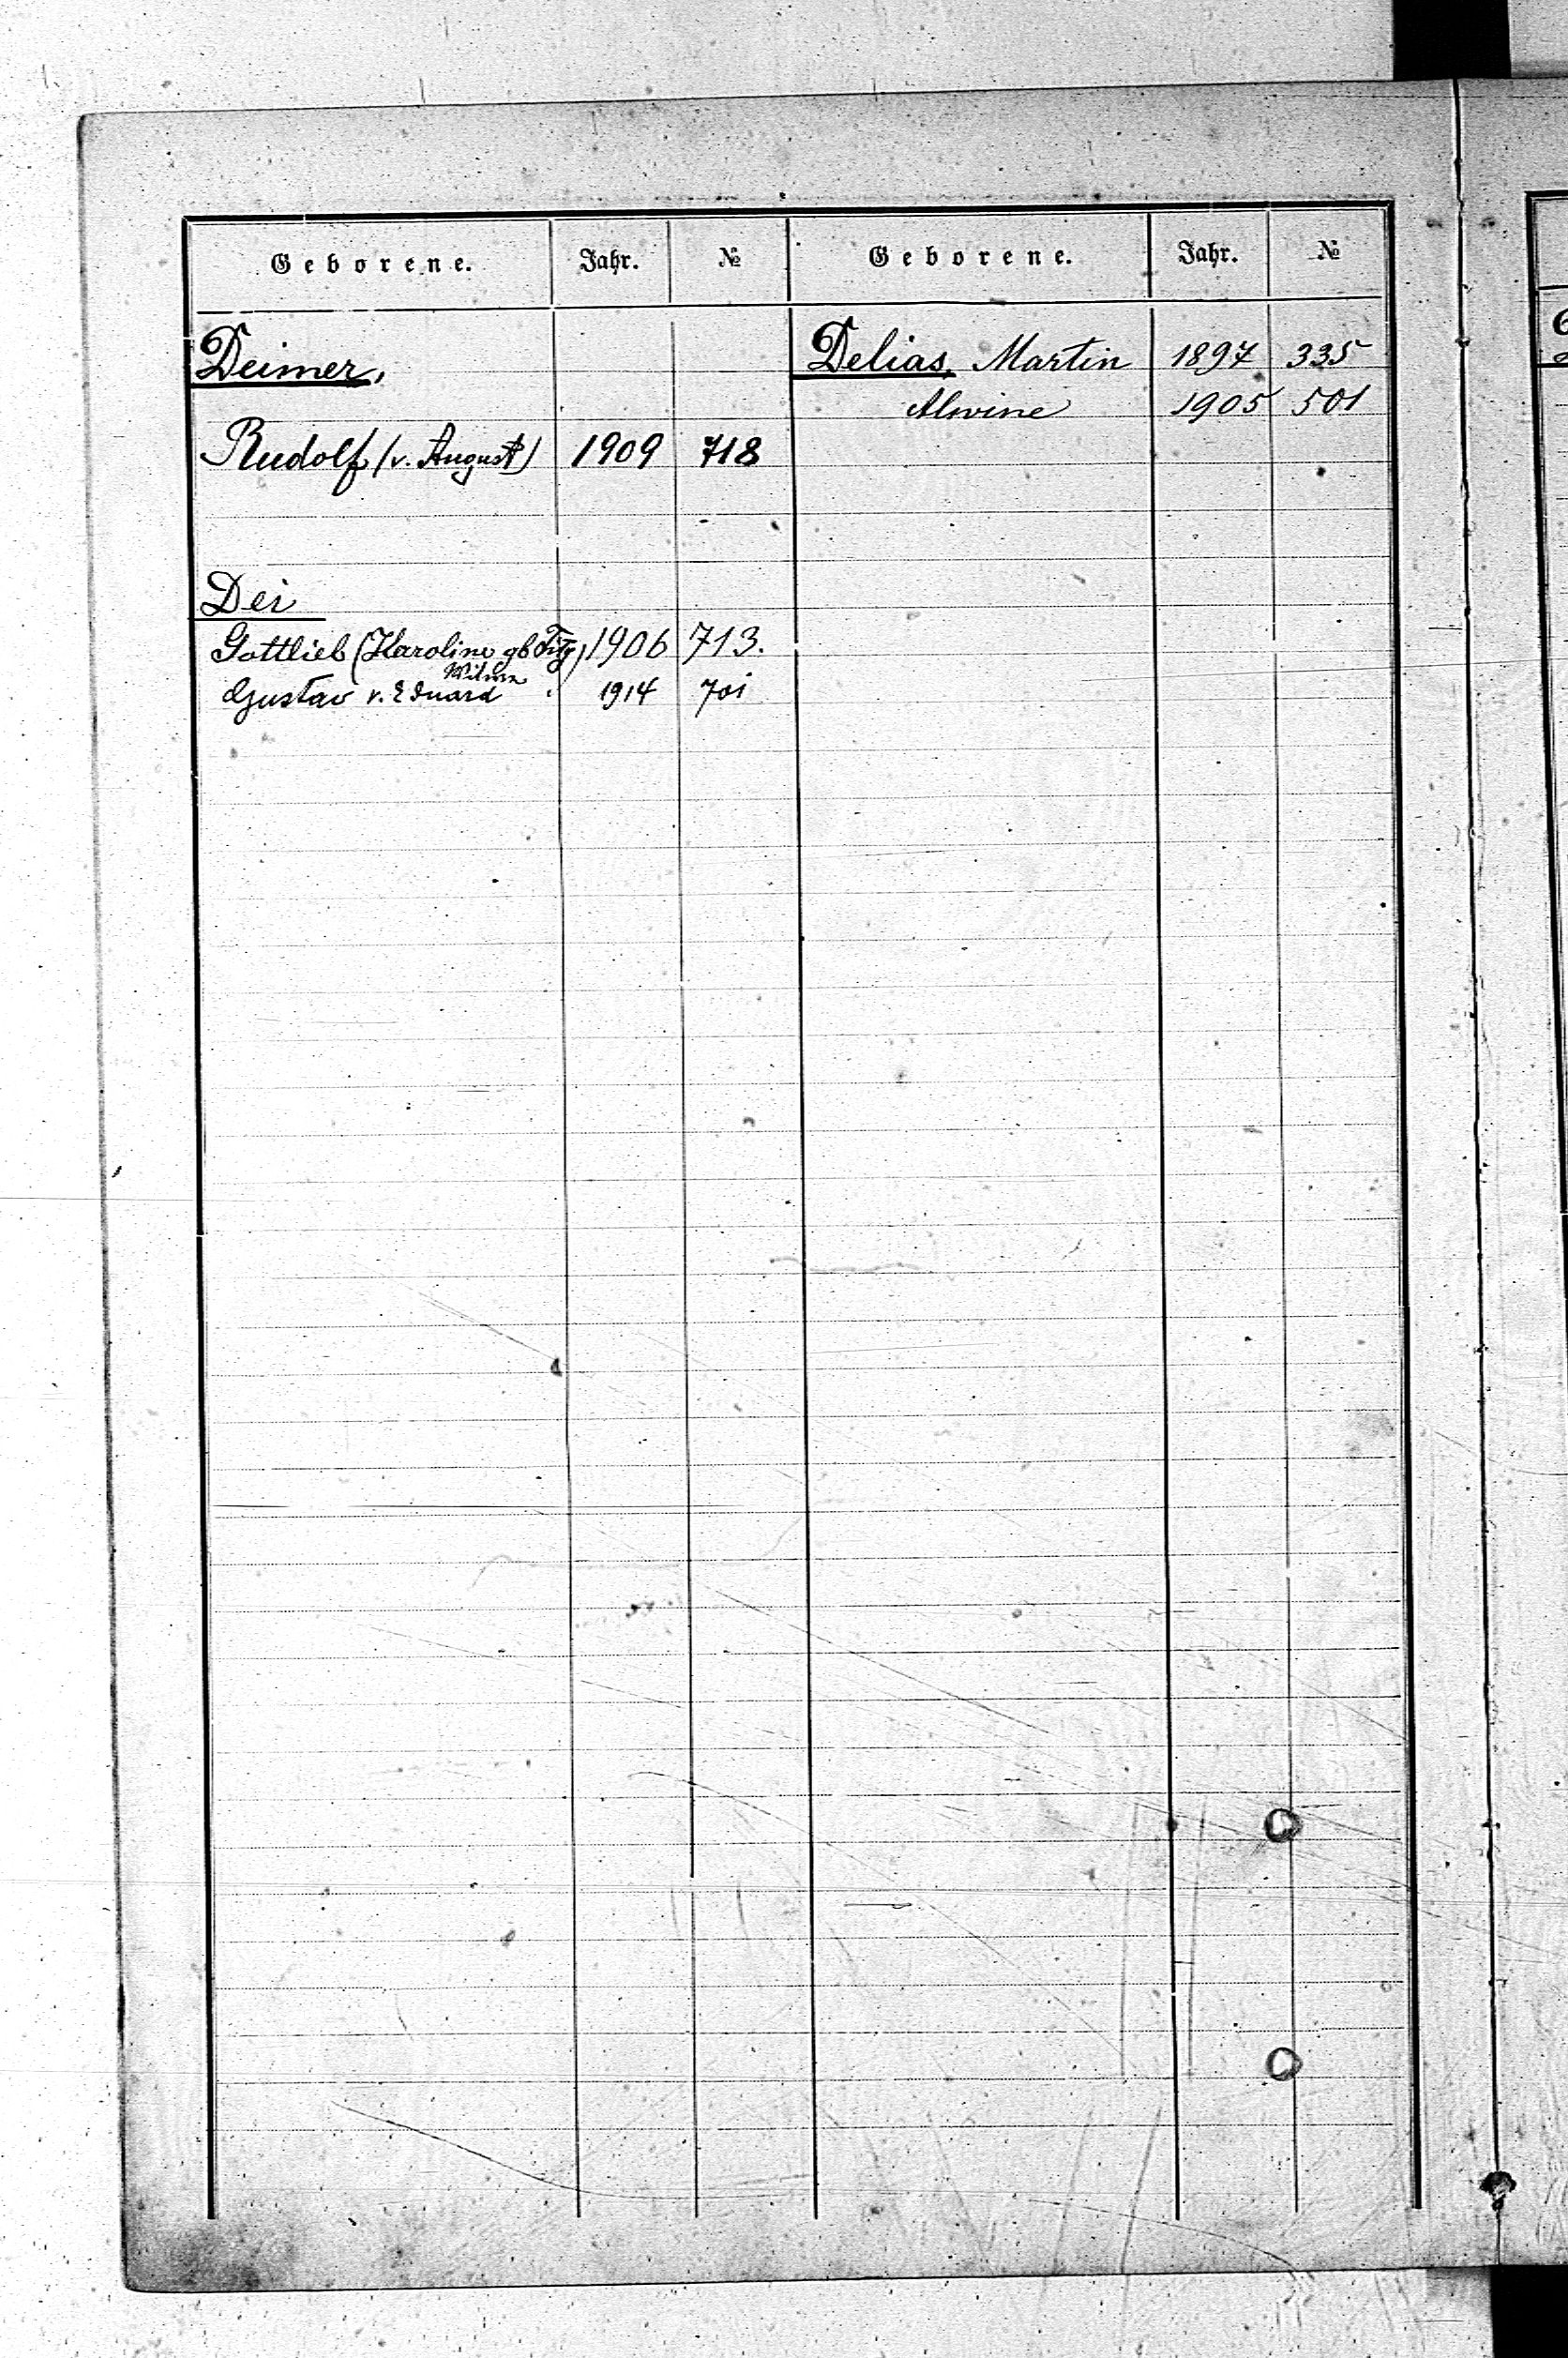 Geborene. Jahr. №
Deimer,
Rudolf (v. August) 1909 718
Dei
Gottlieb (Karoline gb 1906 713.
Gustav v. Eduard 1914 701
Geborene. Jahr. №
Delias, Martin 1897 335
Alwine 1905 501